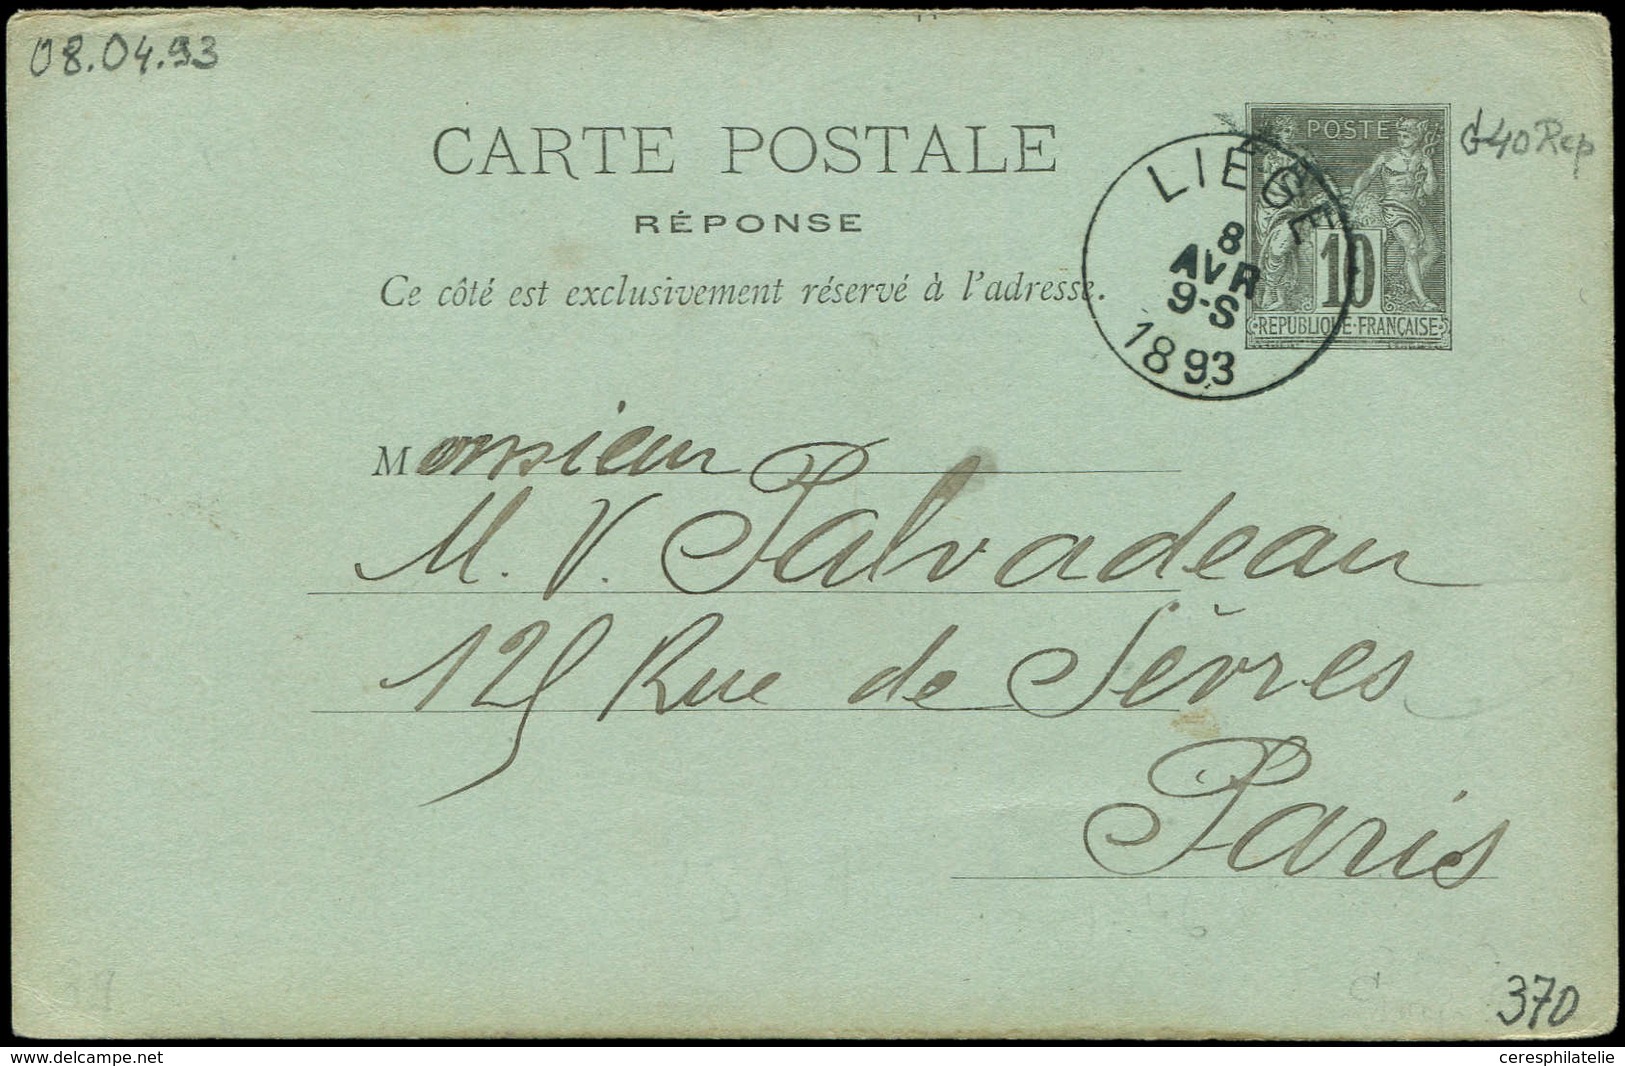 08.04.93
CARTE POSTALE
RÉPONSE
Ce côté est exclusivement réservé à l'adresse.
POSTE
10
REPUBLIQUE·FRANÇAISE
G40 Rep
LIEGE
8
AVR
9-S
1893
Monsieur
M. V. Palvadeau
125 Rue de Sèvres
Paris
370
delcampe.net
ceresphilatelie